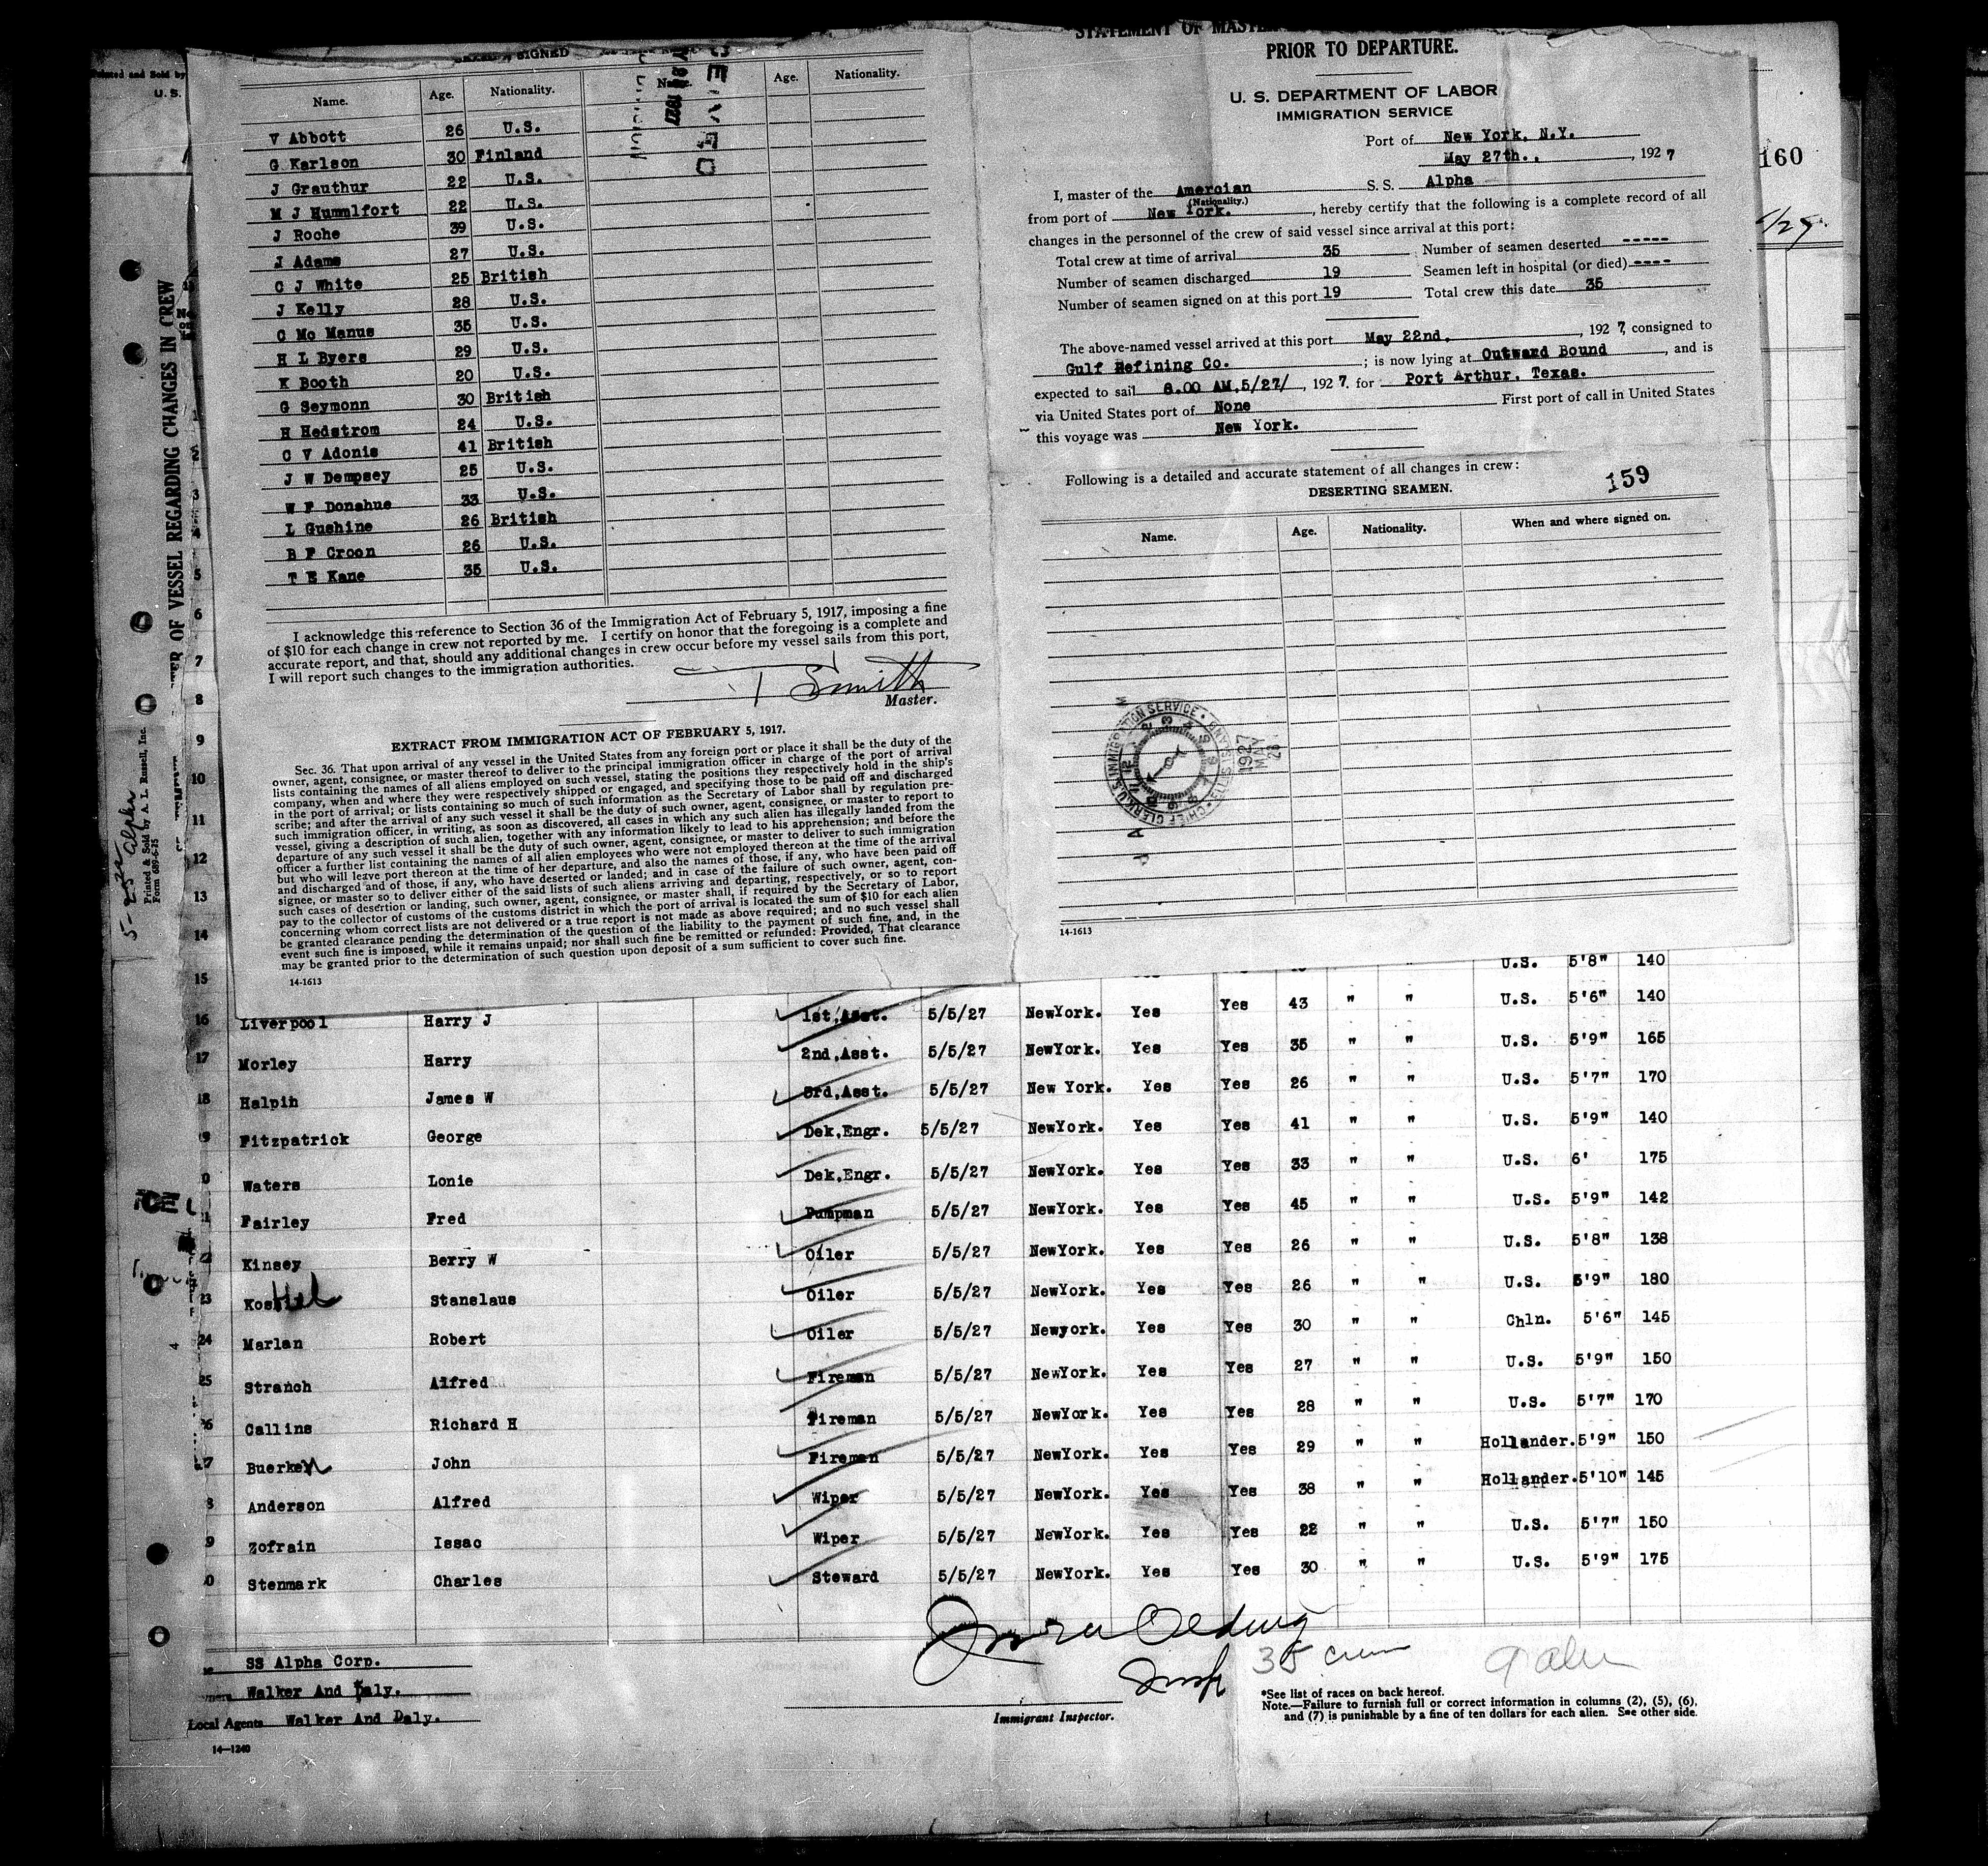 Printed and Sold by
U. S.
TER OF VESSEL REGARDING CHANGES IN CREW
5-25 Alpha
Printed & Sold by A. L. Russell, Inc.
Form 689-5-25
SIGNED
Name. Age. Nationality. Name. Age. Nationality.
V Abbott 26 U.S.
G Karlson 30 Finland
J Grauthur 22 U.S.
M J Hummlfort 22 U.S.
J Roche 39 U.S.
J Adams 27 U.S.
C J White 25 British
J Kelly 28 U.S.
C Mc Manus 35 U.S.
H L Byers 29 U.S.
K Booth 20 U.S.
G Seymonn 30 British
H Hedstrom 24 U.S.
C V Adonis 41 British
J W Dempsey 25 U.S.
W F Donahue 33 U.S.
L Gushine 26 British
B F Croon 26 U.S.
T E Kane 35 U.S.
I acknowledge this reference to Section 36 of the Immigration Act of February 5, 1917, imposing a fine
of $10 for each change in crew not reported by me. I certify on honor that the foregoing is a complete and
accurate report, and that, should any additional changes in crew occur before my vessel sails from this port,
I will report such changes to the immigration authorities.
T Smith
Master.
EXTRACT FROM IMMIGRATION ACT OF FEBRUARY 5, 1917.
Sec. 36. That upon arrival of any vessel in the United States from any foreign port or place it shall be the duty of the
owner, agent, consignee, or master thereof to deliver to the principal immigration officer in charge of the port of arrival
lists containing the names of all aliens employed on such vessel, stating the positions they respectively hold in the ship's
company, when and where they were respectively shipped or engaged, and specifying those to be paid off and discharged
in the port of arrival; or lists containing so much of such information as the Secretary of Labor shall by regulation pre-
scribe; and after the arrival of any such vessel it shall be the duty of such owner, agent, consignee, or master to report to
such immigration officer, in writing, as soon as discovered, all cases in which any such alien has illegally landed from the
vessel, giving a description of such alien, together with any information likely to lead to his apprehension; and before the
departure of any such vessel it shall be the duty of such owner, agent, consignee, or master to deliver to such immigration
officer a further list containing the names of all alien employees who were not employed thereon at the time of the arrival
but who will leave port thereon at the time of her departure, and also the names of those, if any, who have been paid off
and discharged and of those, if any, who have deserted or landed; and in case of the failure of such owner, agent, con-
signee, or master so to deliver either of the said lists of such aliens arriving and departing, respectively, or so to report
such cases of desertion or landing, such owner, agent, consignee, or master shall, if required by the Secretary of Labor,
pay to the collector of customs of the customs district in which the port of arrival is located the sum of $10 for each alien
concerning whom correct lists are not delivered or a true report is not made as above required; and no such vessel shall
be granted clearance pending the determination of the question of the liability to the payment of such fine, and, in the
event such fine is imposed, while it remains unpaid; nor shall such fine be remitted or refunded: Provided, That clearance
may be granted prior to the determination of such question upon deposit of a sum sufficient to cover such fine.
14-1613
STATEMENT OF MASTER
PRIOR TO DEPARTURE.
U. S. DEPARTMENT OF LABOR
IMMIGRATION SERVICE
Port of New York, N.Y.
May 27th., , 1927
I, master of the Amercian S. S. Alpha
(Nationality.)
from port of New York. , hereby certify that the following is a complete record of all
changes in the personnel of the crew of said vessel since arrival at this port:
Total crew at time of arrival 35 Number of seamen deserted -----
Number of seamen discharged 19 Seamen left in hospital (or died) ----
Number of seamen signed on at this port 19 Total crew this date 35
The above-named vessel arrived at this port May 22nd. , 1927, consigned to
Gulf Refining Co. ; is now lying at Outward Bound , and is
expected to sail 8.00 AM.5/27/ , 1927 for Port Arthur, Texas.
via United States port of None First port of call in United States
this voyage was New York.
Following is a detailed and accurate statement of all changes in crew:
DESERTING SEAMEN. 159
Name. Age. Nationality. When and where signed on.
IMMIGRATION SERVICE · ELLIS ISLAND · CHIEF CLERK U.S.
1927 MAY 28
14-1613
160
1 2 3 4 5 6 7 8 9 10 11 12 13 14
15 U.S. 5'8" 140
16 Liverpool Harry J 1st,Asst. 5/5/27 NewYork. Yes Yes 43 " " U.S. 5'6" 140
17 Morley Harry 2nd,Asst. 5/5/27 NewYork. Yes Yes 35 " " U.S. 5'9" 165
18 Halpih James W 3rd,Asst. 5/5/27 New York. Yes Yes 26 " " U.S. 5'7" 170
9 Fitzpatrick George Dek,Engr. 5/5/27 NewYork. Yes Yes 41 " " U.S. 5'9" 140
0 Waters Lonie Dek,Engr. 5/5/27 NewYork. Yes Yes 33 " " U.S. 6' 175
1 Fairley Fred Pumpman 5/5/27 NewYork. Yes Yes 45 " " U.S. 5'9" 142
2 Kinsey Berry W Oiler 5/5/27 NewYork. Yes Yes 26 " " U.S. 5'8" 138
23 Koshel Stanslaus Oiler 5/5/27 NewYork. Yes Yes 26 " " U.S. 5'9" 180
24 Marlan Robert Oiler 5/5/27 Newyork. Yes Yes 30 " " Chln. 5'6" 145
25 Stranch Alfred Fireman 5/5/27 NewYork. Yes Yes 27 " " U.S. 5'9" 150
6 Callins Richard H Fireman 5/5/27 NewYork. Yes Yes 28 " " U.S. 5'7" 170
7 Buerken John Fireman 5/5/27 NewYork. Yes Yes 29 " " Hollander. 5'9" 150
8 Anderson Alfred Wiper 5/5/27 NewYork. Yes Yes 38 " " Hollander. 5'10" 145
9 Zofrain Issac Wiper 5/5/27 NewYork. Yes Yes 22 " " U.S. 5'7" 150
0 Stenmark Charles Steward 5/5/27 NewYork. Yes Yes 30 " " U.S. 5'9" 175
SS Alpha Corp.
Walker And Daly.
Local Agents Walker And Daly.
14-1240
Insp
35 crew
Immigrant Inspector.
*See list of races on back hereof.
Note.—Failure to furnish full or correct information in columns (2), (5), (6),
and (7) is punishable by a fine of ten dollars for each alien. See other side.